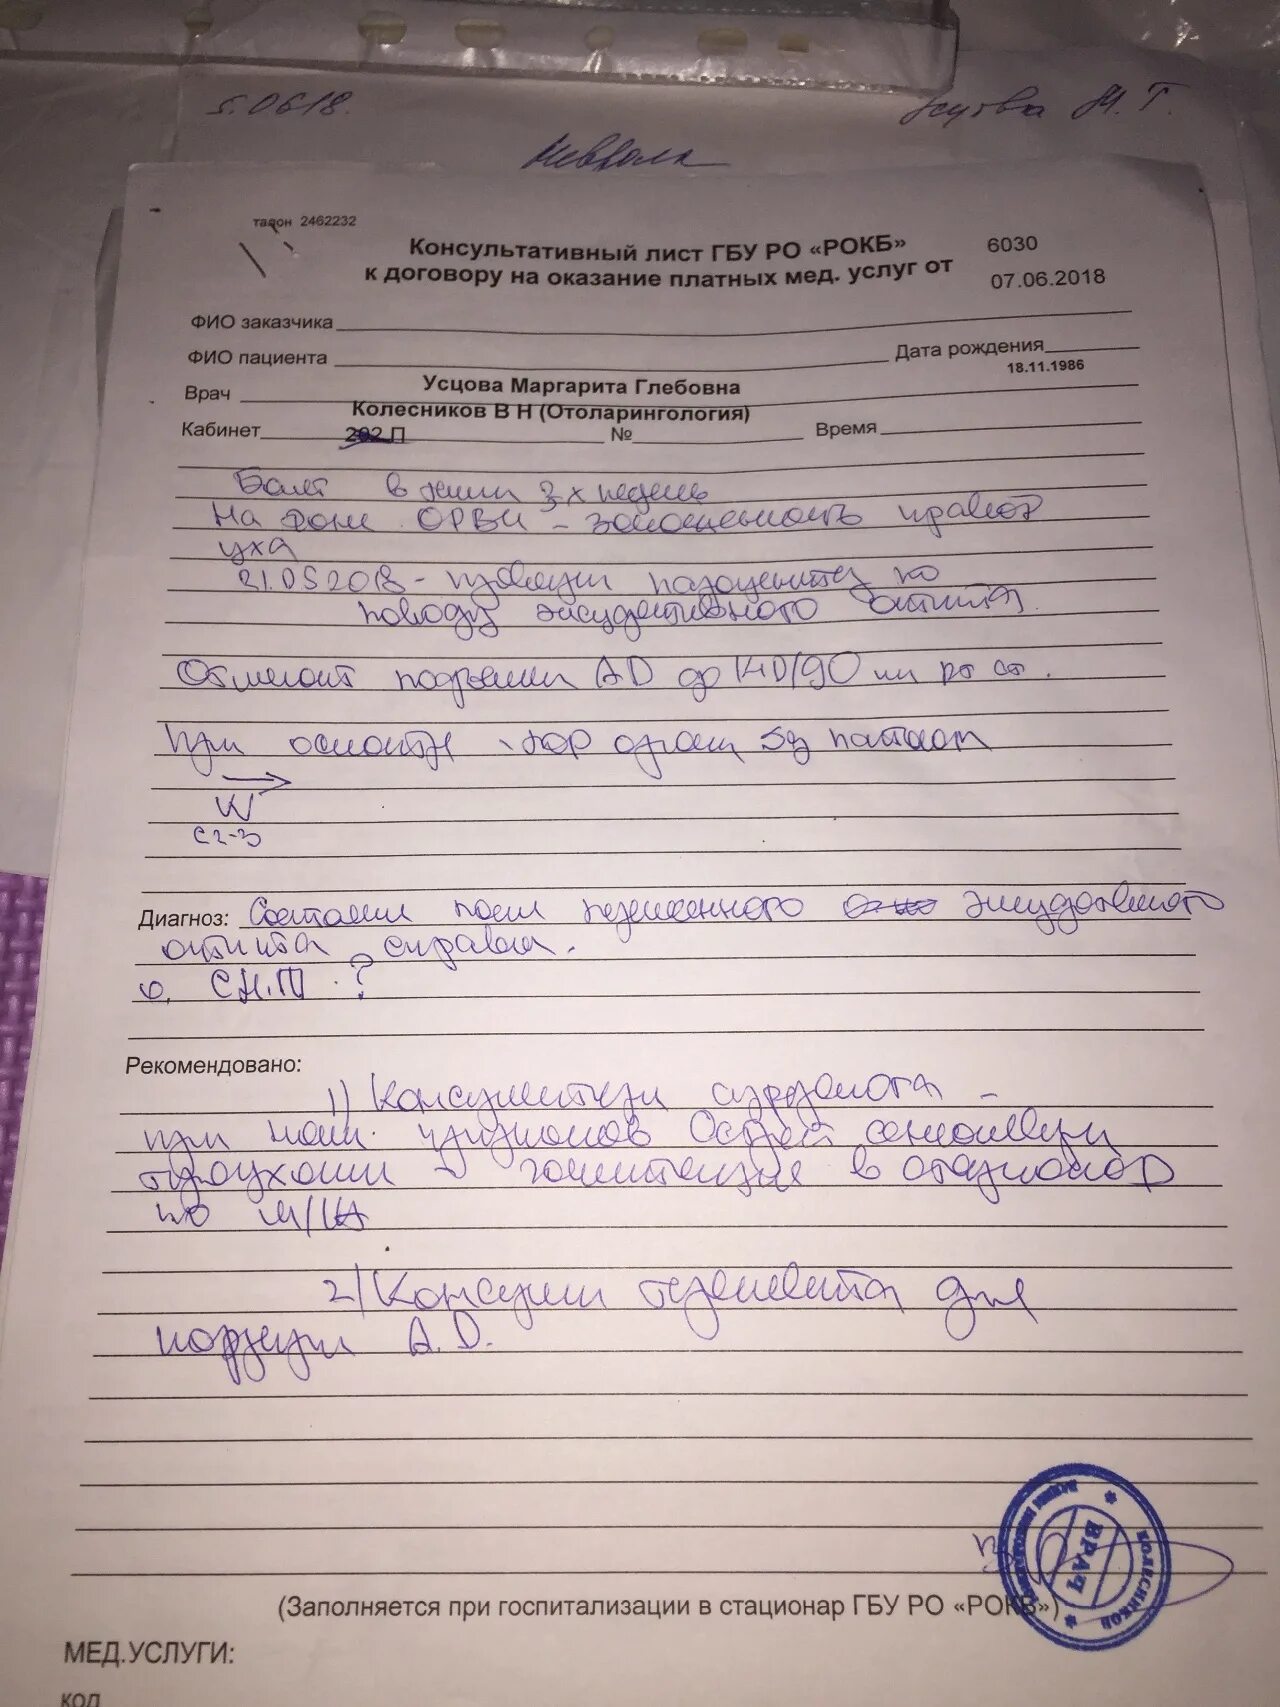 5.06.18.
М. Г.
талон 2462232
Консультативный лист ГБУ РО «РОКБ» 6030
к договору на оказание платных мед. услуг от 07.06.2018
ФИО заказчика
ФИО пациента Дата рождения
18.11.1986
Усцова Маргарита Глебовна
Врач
Колесников В Н (Отоларингология)
Кабинет 202 П № Время
Болеет в течении 3х недель
На фоне ОРВИ - заложенность правого
уха
31.05.2018 - проведен парацентез по
поводу экссудативного отита.
Отмечает подъемы АД до 140/90 мм рт ст.
При осмотре ЛОР органы без патолог
W
С2-3
Диагноз: Состояние после перенесенного экссудативного
отита справа.
о. СНТ ?
Рекомендовано:
1) Консультация сурдолога -
при налич. признаков Острой сенсоневр
тугоухости - госпитализация в стационар
по м/ж
2) Консульт терапевта для
коррекции А.Д.
ВРАЧ
КОЛЕСНИКОВ
(Заполняется при госпитализации в стационар ГБУ РО «РОКБ»)
МЕД.УСЛУГИ:
код